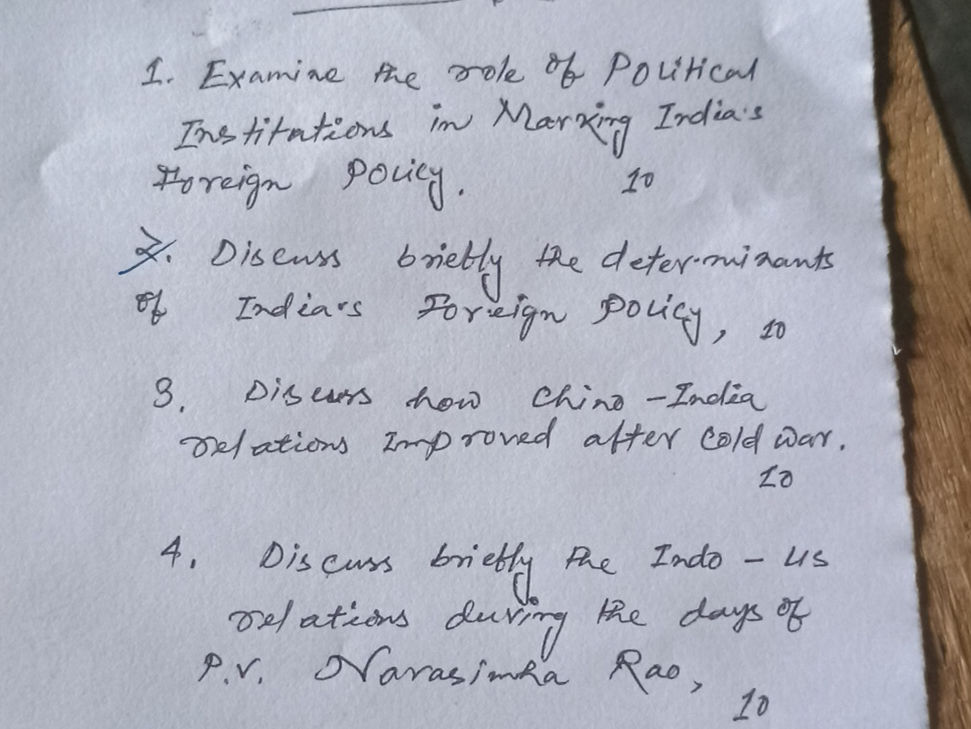 1. Examine the role of Political
Institutions in Marking India's
Foreign Policy. 10
2. Discuss briefly the determinants
of India's Foreign Policy, 10
3. Discuss how Chino - India
relations Improved after cold war.
10
4. Discuss briefly the Indo - US
relations during the days of
P.V. Narasimha Rao,
10